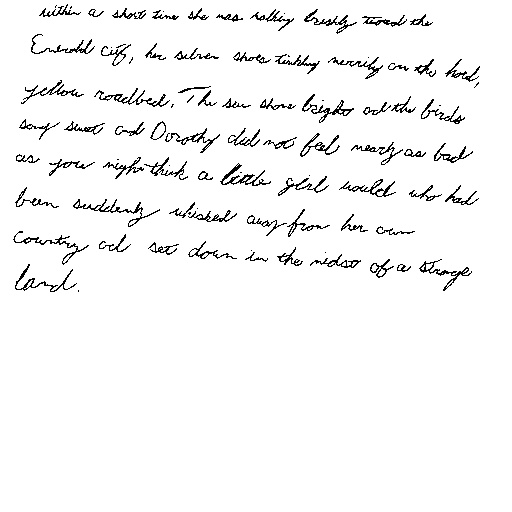 within a short time she was walking briskly toward the
Emerald City, her silver shoes tinkling merrily on the hard,
yellow roadbed. The sun shone bright and the birds
sang sweet and Dorothy did not feel nearly as bad
as you might think a little girl would who had
been suddenly whisked away from her own
country and set down in the midst of a strange
land.